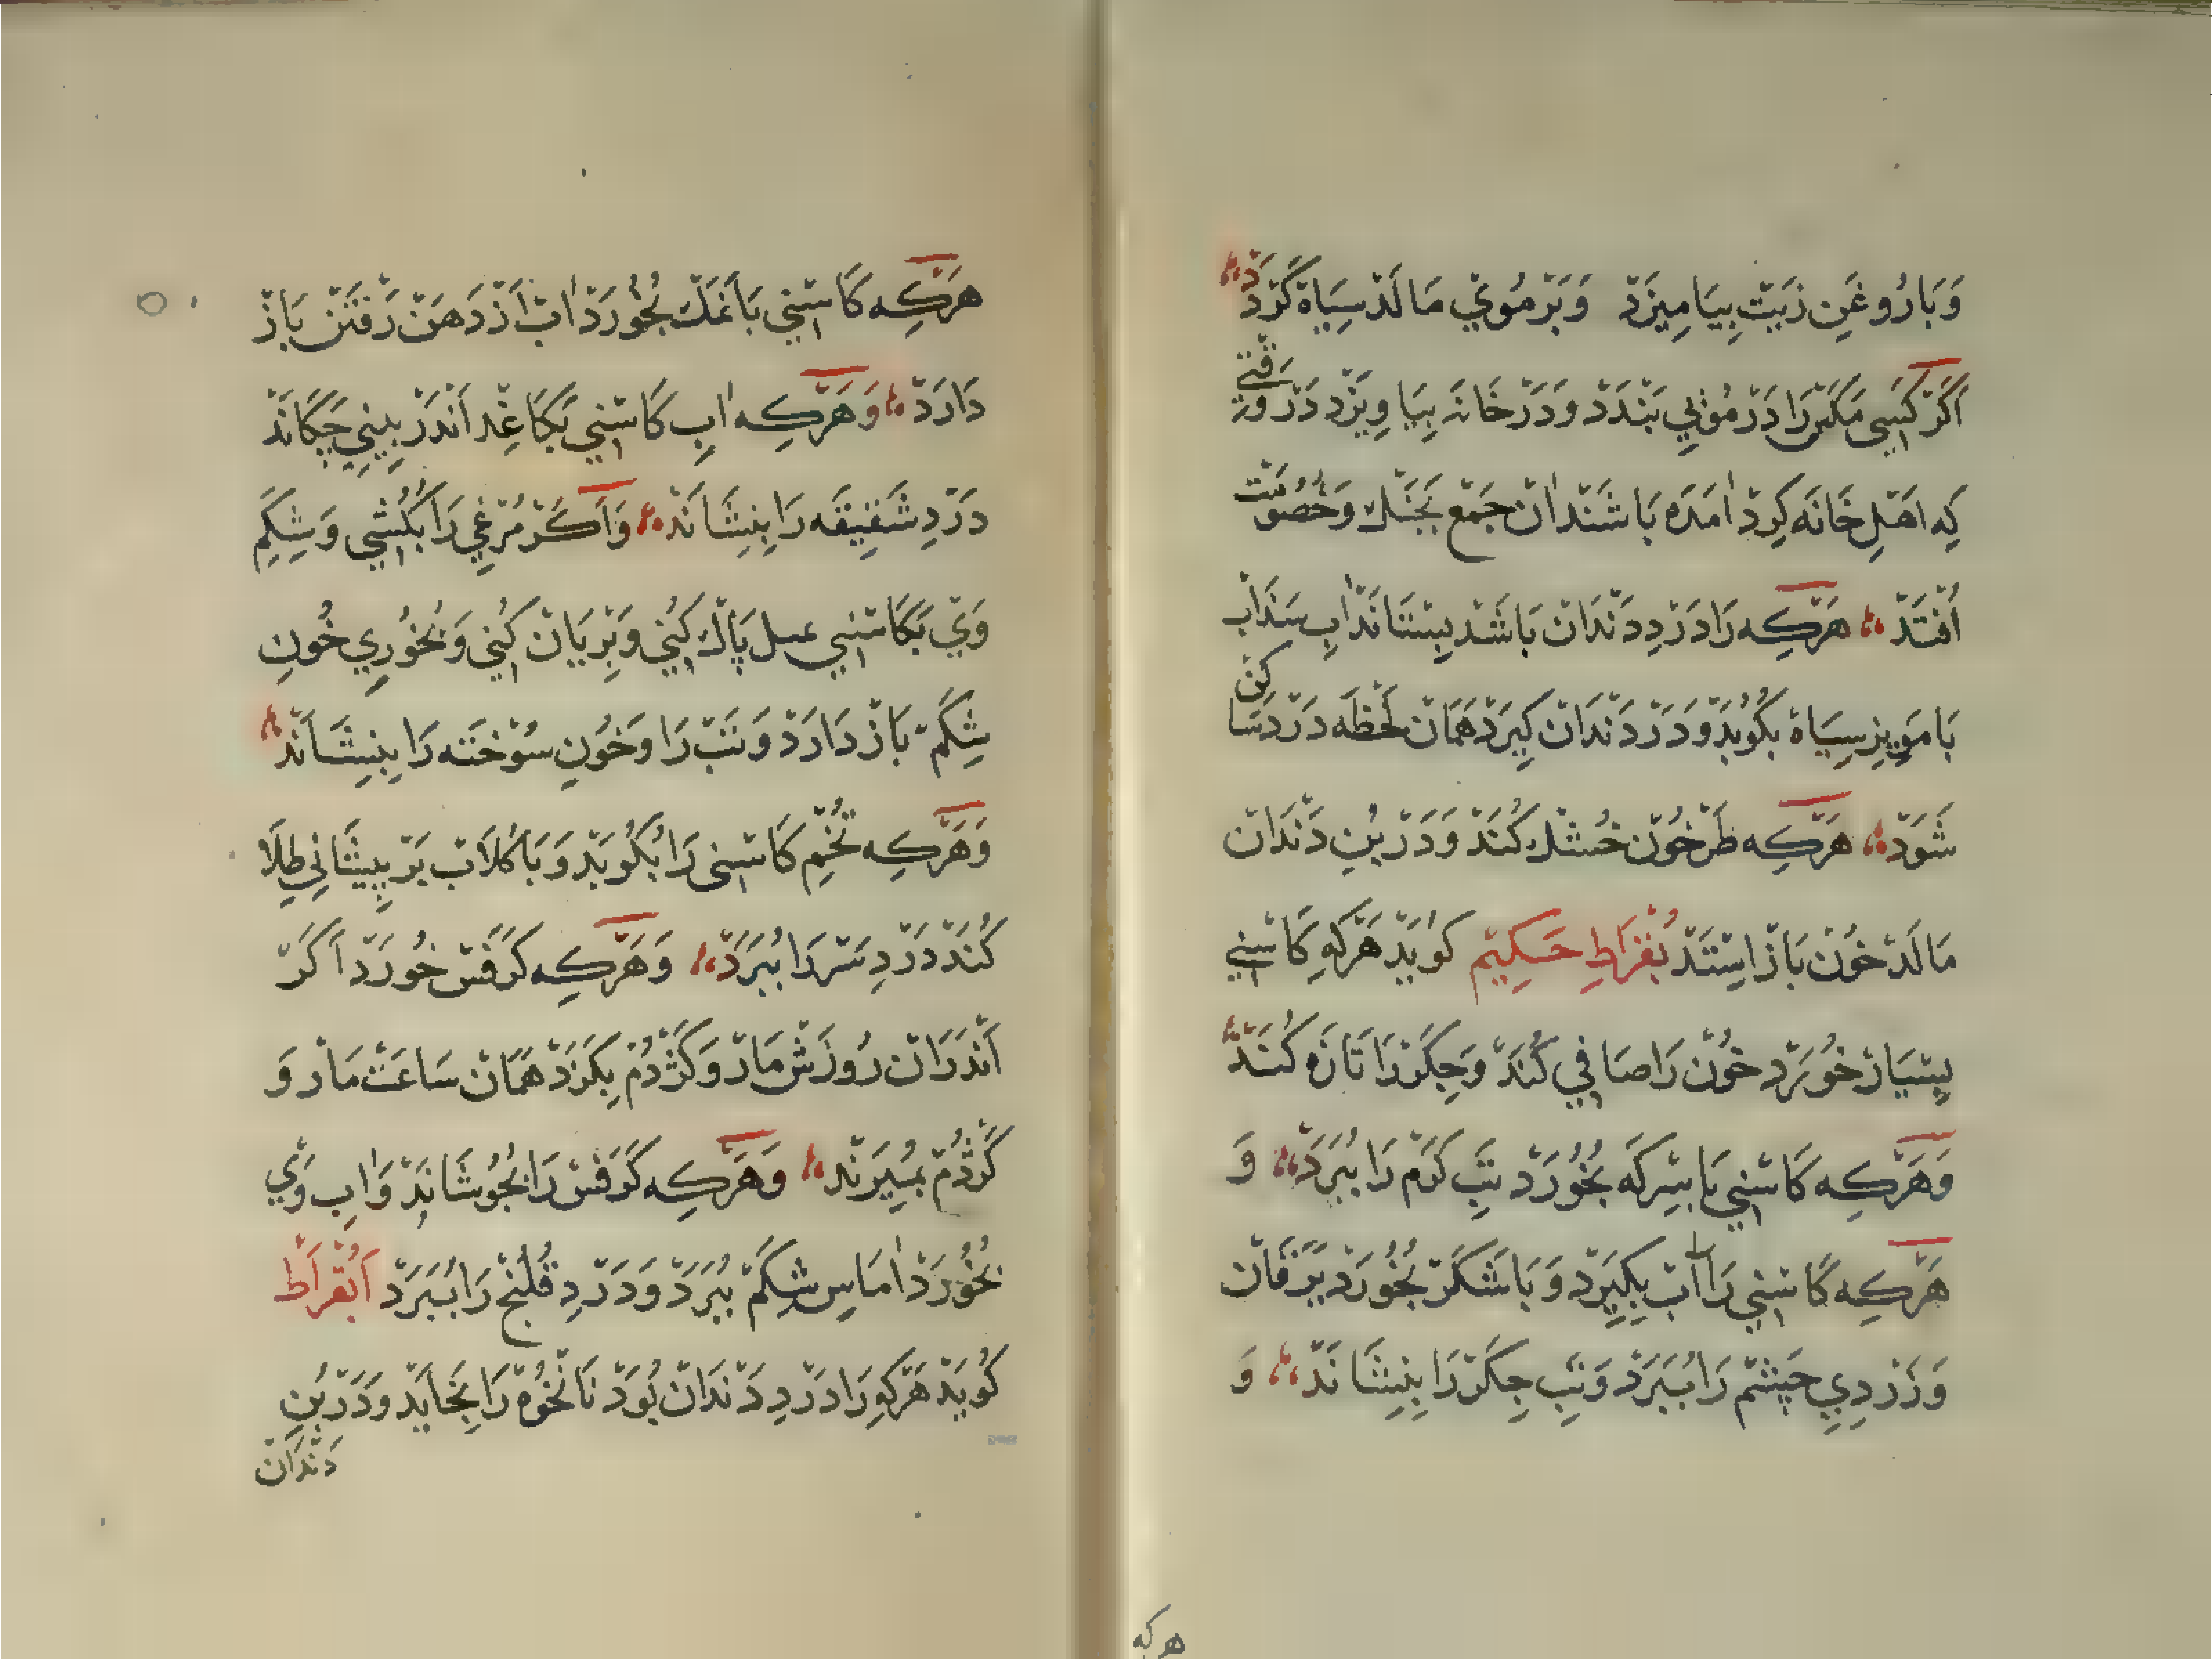 وَبَارُوغَنِ زَيتْ بِيَامِيزَدْ وَبَرْمُويْ مَالَدْ سِيَاهْ كَرْدَدْ
اَكَرْ كَسِى مَكَسْ رَا دَرْ مُوْيِي بَنْدَدْ وَدَرْ خَانَه بِيَاوِيزَدْ دَرْ وَقْتِي
كِه اهْلِ خَانَه كِرْد اٰمَدَه بَاشَنْد اٰنْ جَمْع بَجَنْك وَخُصُومَتْ
اُفْتَدْ هَرْكِه رَا دَرْدِ دَنْدَانْ بَاشَدْ بِسِتَانَدْ اٰبِ سَدَابْ
بَا مَوِيزِ سِيَاهْ بِكُوبَدْ وَدَرْ دَنْدَانْ كِيرَدْ هَمَانْ لَحْظَه دَرْد سَاكِنْ
شَوَدْ هَرْكِه طَرْخُونْ خُشْك كُنَدْ وَدَرْ بُنِ دَنْدَانْ
مَالَدْ خُونْ بَاز اِسْتَدْ بُقْرَاطِ حَكِيمْ كُوْيَدْ هَرْكِهِ كَاسْنِي
بِسْيَارْ خُورَدْ خُونْ رَا صَافِي كُنَدْ وَجِكَرْ رَا تَازَه كُنَدْ
وَهَرْكِه كَاسْنِي بَا سِرْكَه بُخُورَدْ تَبِ كَرَمْ رَا بُبَرَدْ وَ
هَرْكِه كَاسْنِي رَا اٰبْ بِكِيَرَدْ وَبَاشَكَرْ بُخُورَدْ يَرَقَانْ
وَزَرْدِيِ چَشْمْ رَا بُبَرَدْ وَتَبِ جِكَرْ رَا بِنِشَانَدْ وَ
هركه
هَرْكِه كَاسْنِي بَانَمَكْ بُخُورَدْ اٰبْ اَزْ دَهَنْ رَفْتَنْ بَازْ
دَارَدْ وَهَرْكِه اٰبِ كَاسْنِي بَكَاغِد اَنْدَرْ بِينِي چَكَانَدْ
دَرْدِ شَقِيقَه رَا بِنِشَانَدْ وَاَكَرْ مُرْغِي رَا بُكُشِي وَشِكَمِ
وَيْ بَكَاسْنِي عسل پَاكْ كُنِي وَبِرْيَانْ كُنِي وَبُخُورِي خُونِ
شِكَمْ بَازْ دَارَدْ وَتَبْ رَا وَخُونِ سُوْخْتَه رَا بِنِشَانَدْ
وَهَرْكِه تُخْمِ كَاسْنِى رَا بُكُوبَدْ وَبَا كُلَابْ بَرْ پِيشَانِي طِلَا
كُنَدْ دَرْدِ سَرْ رَا بُبَرَدْ وَهَرْكِه كَرَفْسْ خُورَدْ اَكَرْ
اَنْدَرْ اٰنْ رُوزَشْ مَارْ وَكَژْدُمْ بِكَزَدْ هَمَانْ سَاعَتْ مَارْ وَ
كَژْدُمْ بِمِيرَنْدْ وَهَرْكِه كَرَفْسْ رَا بُجُوشَانَدْ وَاٰبِ وَيْ
بُخُورَدْ اٰمَاسِ شِكَمْ بُبَرَدْ وَدَرْدِ قُلَنْجْ رَا بُبَرَدْ اَبُقْرَاطْ
كُويَدْ هَرْكِهِ رَا دَرْدِ دَنْدَانْ بُوَدْ نَانْخُوَهْ رَا بِخَايَدْ وَدَرْ بُنِ
دَنْدَانْ